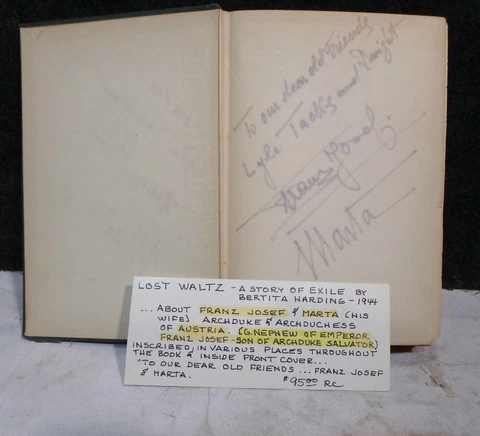 To our dear old friends
Lyle Tackis and Dwight
Franz Josef.
Marta
LOST WALTZ - A STORY OF EXILE BY
BERTITA HARDING - 1944
... ABOUT FRANZ JOSEF & MARTA (HIS
WIFE) ARCHDUKE & ARCHDUCHESS
OF AUSTRIA. (G.NEPHEW OF EMPEROR
FRANZ JOSEF - SON OF ARCHDUKE SALVATOR)
INSCRIBED, IN VARIOUS PLACES THROUGHOUT
THE BOOK & INSIDE FRONT COVER...
"TO OUR DEAR OLD FRIENDS ... FRANZ JOSEF
& MARTA.
$95.00 RC